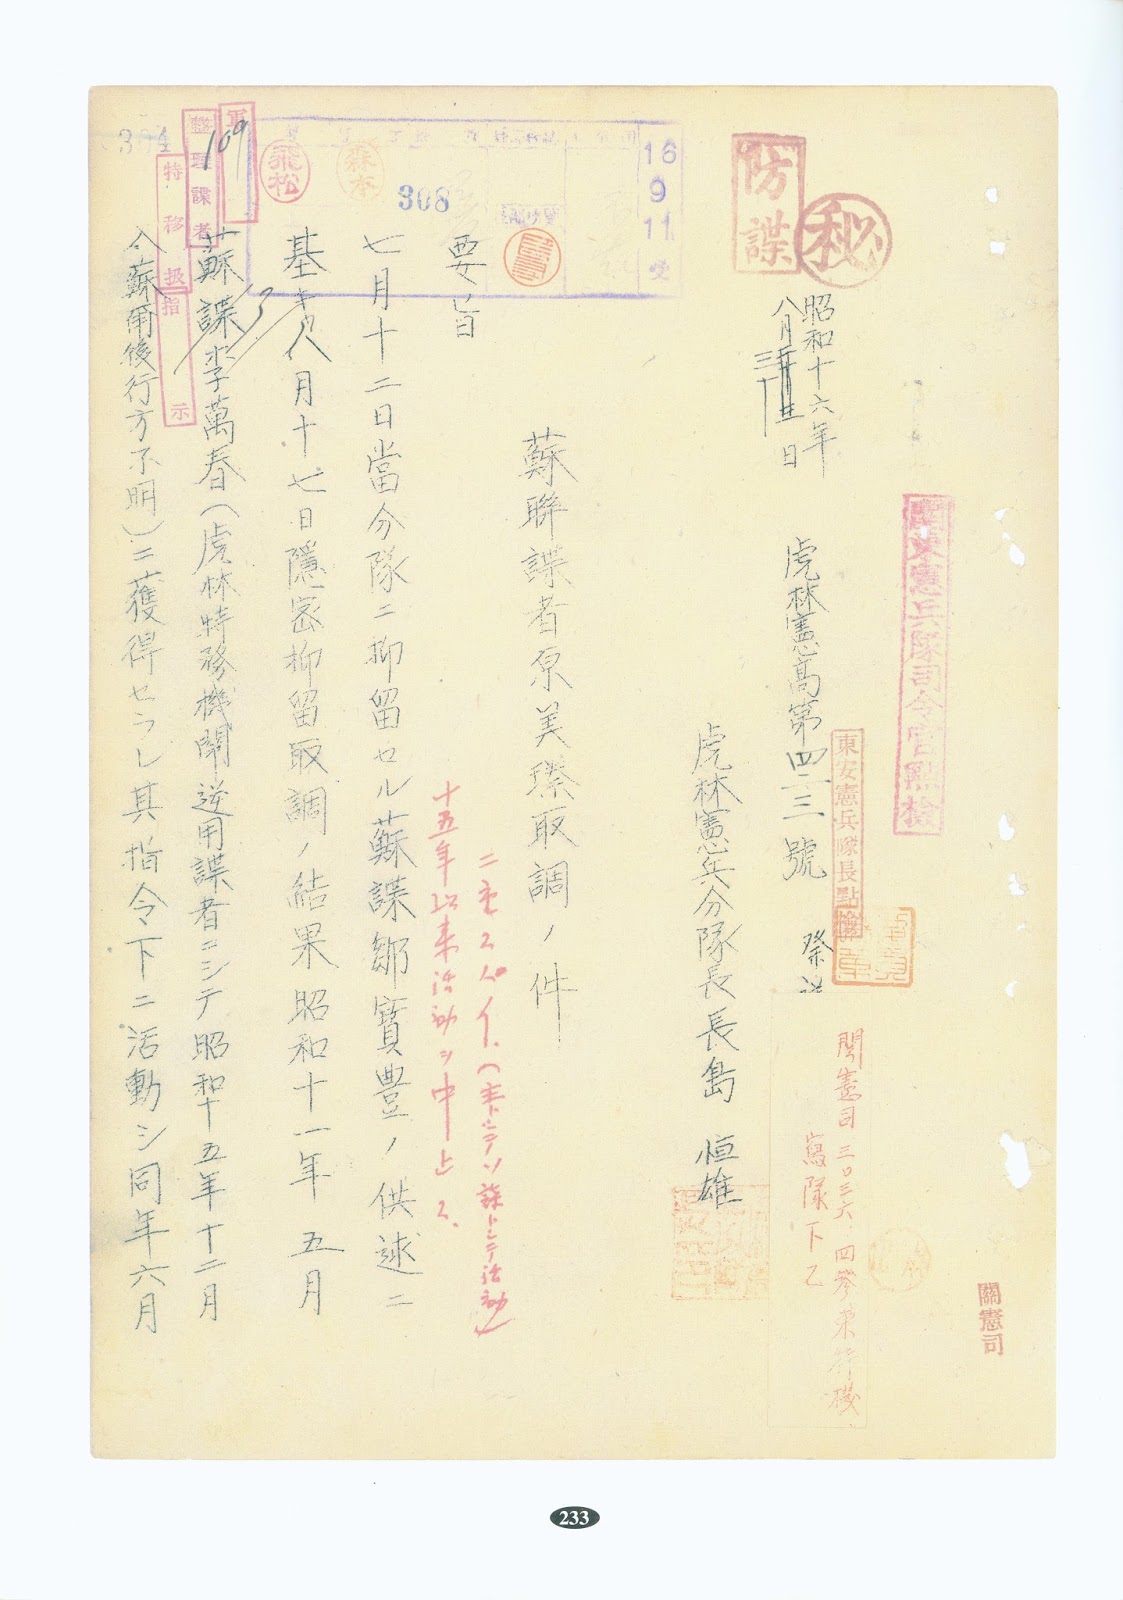 關憲司
關東憲兵隊司令官點檢
東安憲兵隊長點檢
關憲司 三〇三六、四參東特機
寫隊下乙
防諜
秘
昭和十六年
八月三十日
虎林憲高第四二三號
虎林憲兵分隊長長島 恒雄
16
9
11
受
308
森本
飛松
蘇聯諜者原美臻取調ノ件
二重スパイ.(主トシテソ蘇トシテ活動)
十五年以來活動ヲ中止ス.
要旨
七月十二日當分隊ニ抑留セル蘇諜鄒寶豊ノ供述ニ
基キ八月十七日隱密抑留取調ノ結果昭和十一年五月
蘇諜李萬春(虎林特務機關逆用諜者ニシテ昭和十五年十二月
入蘇爾後行方不明)ニ獲得セラレ其指令下ニ活動シ同年六月
109
整理諜者
特移扱
指示
304
233